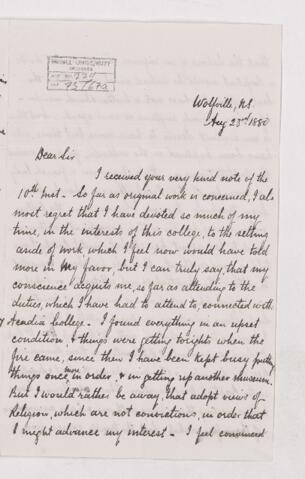 McGILL UNIVERSITY
ARCHIVES
ACC. NO. 927
REF. 73/67a
Wolfville, N.S.
Aug 23rd 1880
Dear Sir
I received your very kind note of the
10th Inst. So far as original work is concerned, I al-
most regret that I have devoted so much of my
time, in the interests of this college, to the setting
aside of work which I feel now would have told
more in my favor, but I can truly say, that my
conscience acquits me, so far as attending to the
duties, which I have had to attend to, connected with
Acadia College. I found everything in an upset
condition, & things were getting to rights when the
fire came, since then I have been kept busy putting
things once more in order, & in getting up another museum.
But I would rather be away, that adopt views of
Religion, which are not convictions, in order that
I might advance my interest. I feel convinced